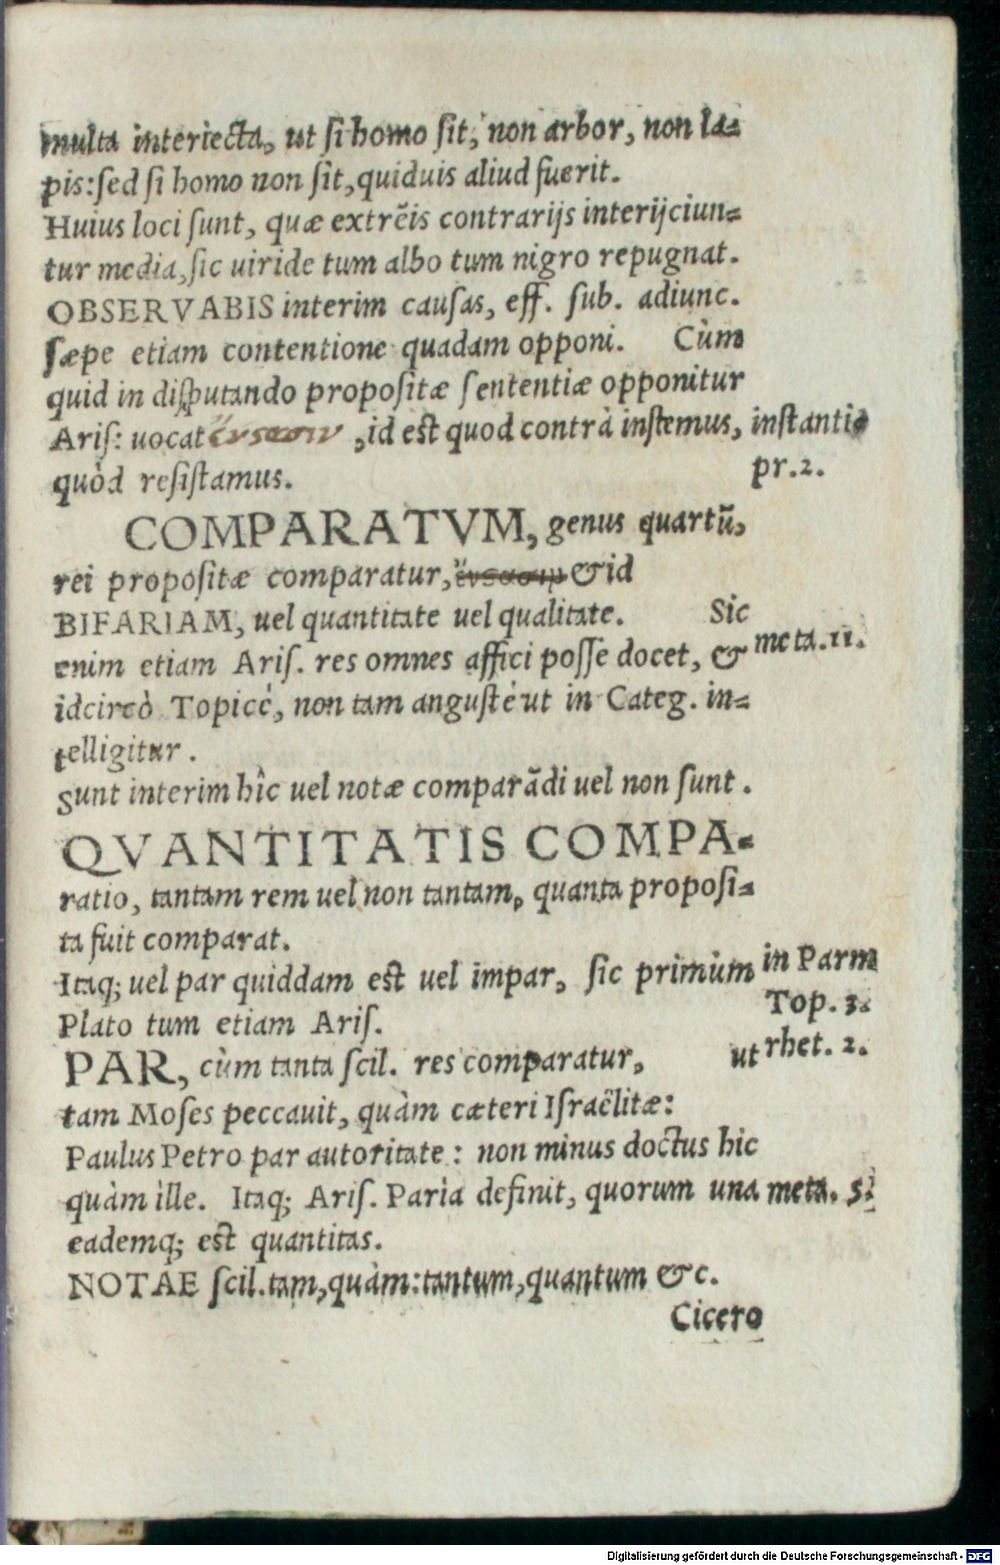 multa interiecta, ut si homo sit, non arbor, non la=
pis: sed si homo non sit, quiduis aliud fuerit.
Huius loci sunt, quæ extrẽis contrarijs interijciun=
tur media, sic uiride tum albo tum nigro repugnat.
OBSERVABIS interim causas, eff. sub. adiunc.
sæpe etiam contentione quadam opponi. Cùm
quid in disputando propositæ sententiæ opponitur
Aris: uocat , id est quod contrà instemus, instantia
quòd resistamus. pr.2.
COMPARATVM, genus quartũ,
rei propositæ comparatur, & id
BIFARIAM, uel quantitate uel qualitate. Sic
enim etiam Aris. res omnes affici posse docet, & meta.11.
idcircò Topicè, non tam angustè ut in Categ. in=
telligitur.
Sunt interim hîc uel notæ comparãdi uel non sunt.
QVANTITATIS COMPA=
ratio, tantam rem uel non tantam, quanta proposi=
ta fuit comparat.
Itaq; uel par quiddam est uel impar, sic primùm in Parm
Plato tum etiam Aris. Top. 3.
PAR, cùm tanta scil. res comparatur, ut rhet. 2.
tam Moses peccauit, quàm cæteri Israëlitæ:
Paulus Petro par autoritate: non minus doctus hic
quàm ille. Itaq; Aris. Paria definit, quorum una meta. 5.
eademq; est quantitas.
NOTAE scil. tam, quàm: tantum, quantum &c.
Cicero
Digitalisierung gefördert durch die Deutsche Forschungsgemeinschaft - DFG